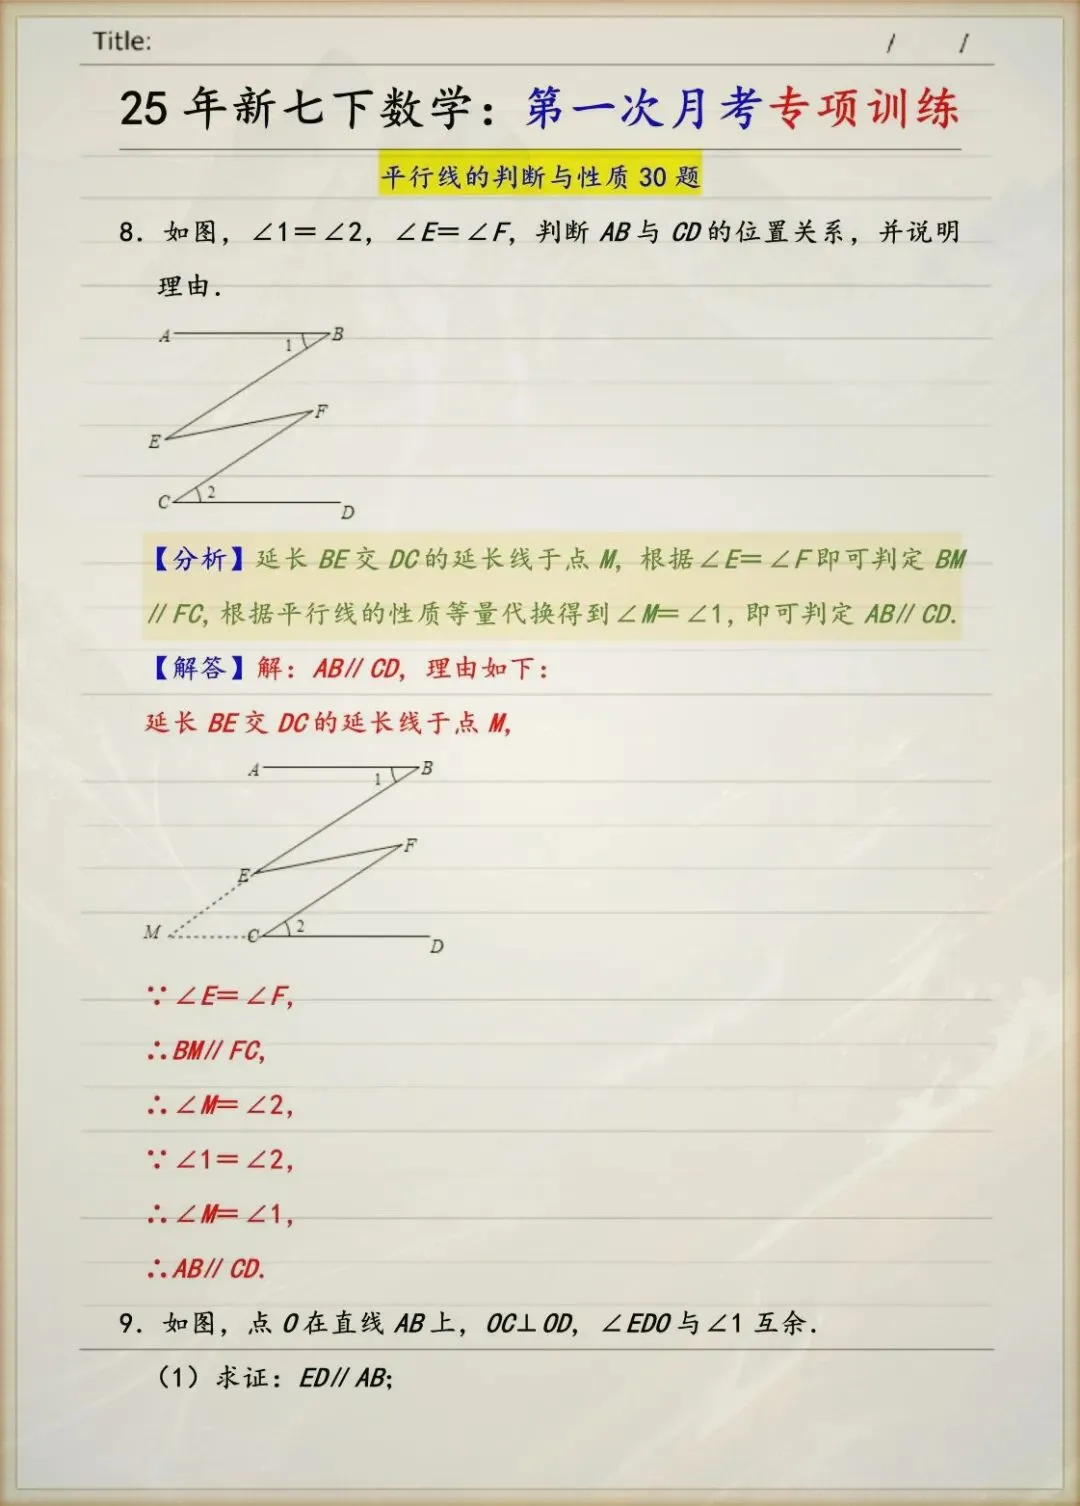 Title:
/ /
25 年新七下数学：第一次月考专项训练
平行线的判断与性质 30 题
8．如图，∠1＝∠2，∠E＝∠F，判断 AB 与 CD 的位置关系，并说明
理由．
A B
1
F
E
C 2
D
【分析】延长 BE 交 DC 的延长线于点 M，根据∠E＝∠F 即可判定 BM
∥FC，根据平行线的性质等量代换得到∠M＝∠1，即可判定 AB∥CD．
【解答】解：AB∥CD，理由如下：
延长 BE 交 DC 的延长线于点 M，
A B
1
F
E
M C 2
D
∵∠E＝∠F，
∴BM∥FC，
∴∠M＝∠2，
∵∠1＝∠2，
∴∠M＝∠1，
∴AB∥CD．
9．如图，点 O 在直线 AB 上，OC⊥OD，∠EDO 与∠1 互余．
（1）求证：ED∥AB；